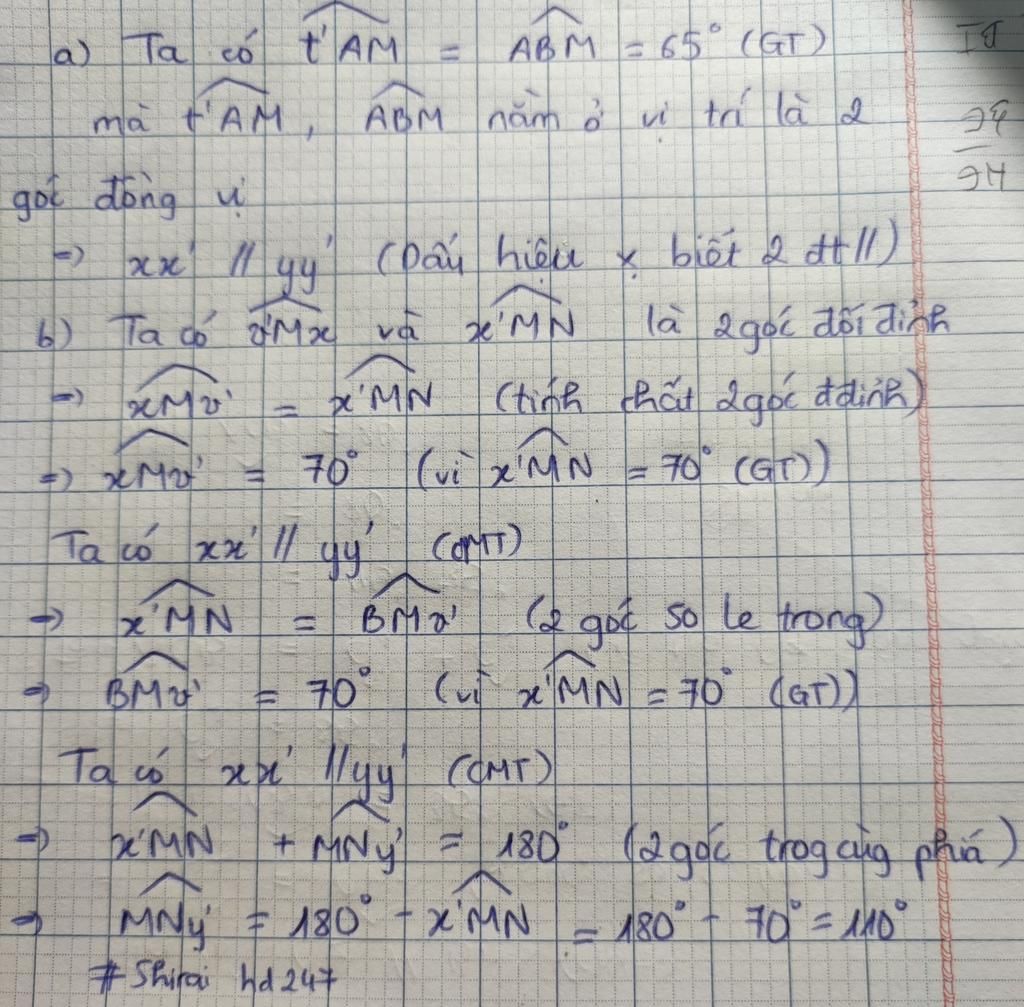 a) Ta có t'AM = ABM = 65° (GT)
mà t'AM, ABM nằm ở vị trí là 2
góc đồng vị
=> xx' // yy' (Dấu hiệu x biết 2 đt //)
b) Ta có v'Mx và x'MN là 2 góc đối đỉnh
=> xMv' = x'MN (tính chất 2 góc đ đỉnh)
=> xMv' = 70° (vì x'MN = 70° (GT))
Ta có xx' // yy' (CMT)
=> x'MN = BMv' (2 góc so le trong)
=> BMv' = 70° (vì x'MN = 70° (GT))
Ta có xx' // yy' (CMT)
=> x'MN + MNy' = 180° (2 góc trog cùg phía)
=> MNy' = 180° - x'MN = 180° - 70° = 110°
# Shirai hd247